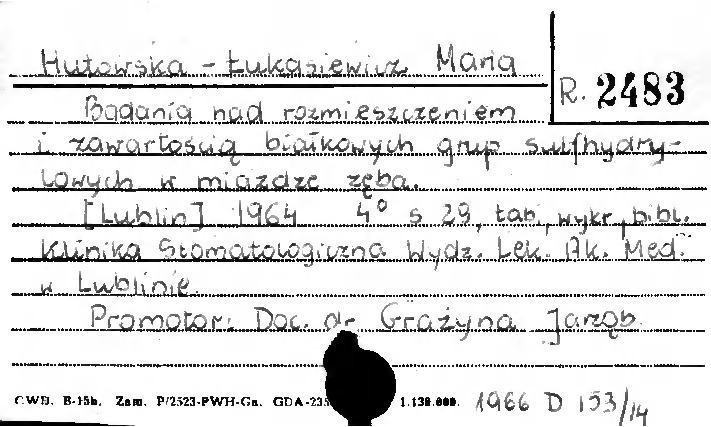 Hutowska-Łukasiewicz Maria
R. 2483
Badania nad rozmieszczeniem
i zawartością białkowych grup sulfhydry-
lowych w miazdze zęba.
[Lublin] 1964 4° s 29, tab., wykr., bibl.
Klinika Stomatologiczna Wydz. Lek. Ak. Med.
w Lublinie.
Promotor: Doc. dr Grażyna Jarząb
CWD. B-15b. Zam. P/2523-PWH-Gn. GDA-235 1.130.000. 1966 D 153/14